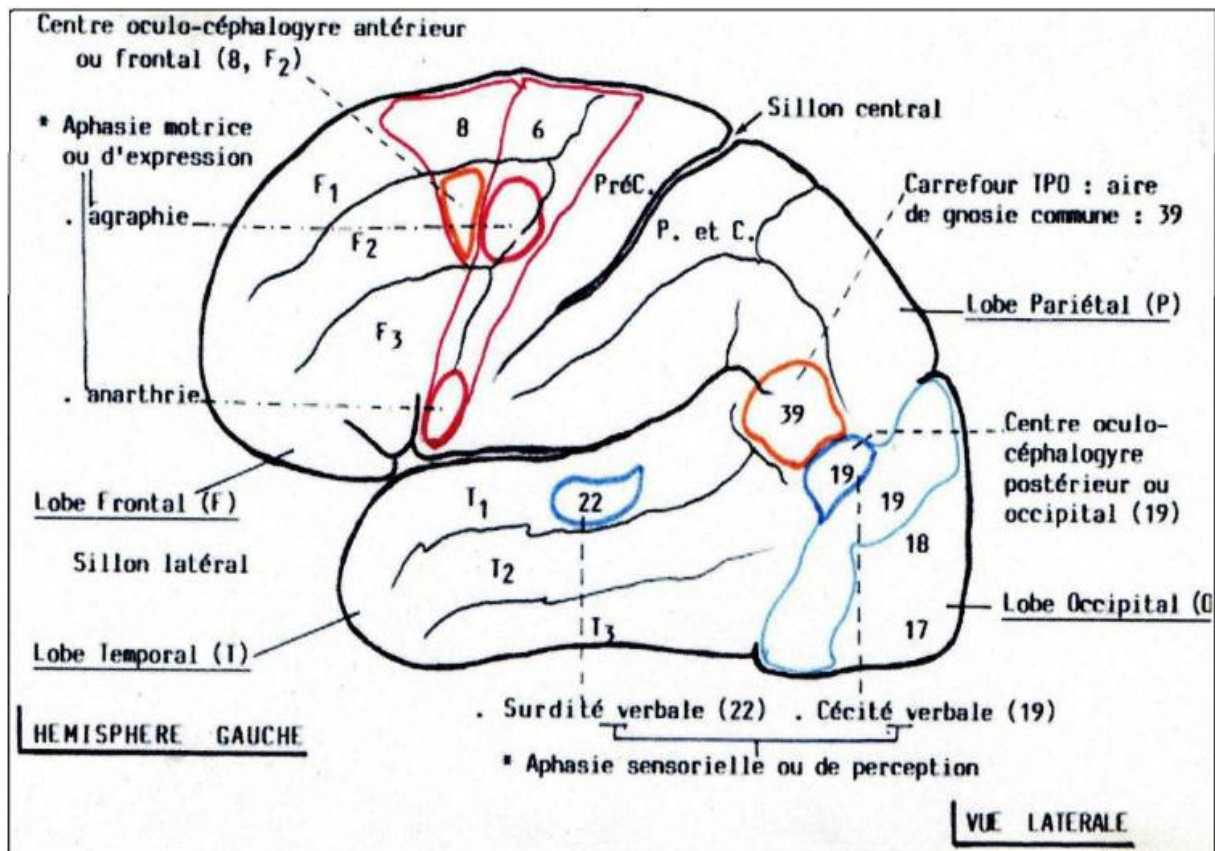 Centre oculo-céphalogyre antérieur
ou frontal (8, F2)
* Aphasie motrice
ou d'expression
. agraphie
. anarthrie
Lobe Frontal (F)
Sillon latéral
Lobe Temporal (T)
HEMISPHERE GAUCHE
8
6
F1
F2
F3
PréC.
P. et C.
Sillon central
Carrefour TPO : aire
de gnosie commune : 39
Lobe Pariétal (P)
39
19
19
18
17
22
T1
T2
T3
Centre oculo-
céphalogyre
postérieur ou
occipital (19)
Lobe Occipital (O
. Surdité verbale (22) . Cécité verbale (19)
* Aphasie sensorielle ou de perception
VUE LATERALE